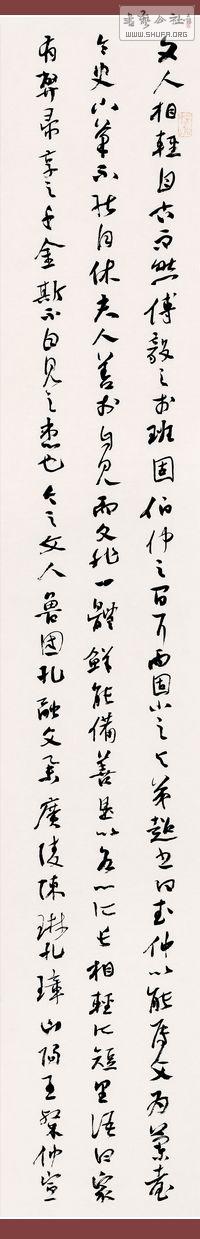 書藝公社
WWW.SHUFA.ORG
文人相輕自古而然傅毅之於班固伯仲之間耳而固小之與弟超書曰武仲以能屬文為蘭臺
令史下筆不能自休夫人善於自見而文非一體鮮能備善是以各以所長相輕所短里語曰家
有弊帚享之千金斯不自見之患也今之文人魯國孔融文舉廣陵陳琳孔璋山陽王粲仲宣